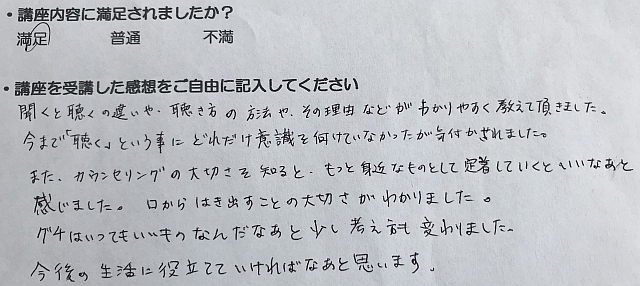 ・講座内容に満足されましたか？
満足 普通 不満
・講座を受講した感想をご自由に記入してください
聞くと聴くの違いや、聴き方の方法や、その理由などがわかりやすく教えて頂きました。
今まで「聴く」という事にどれだけ意識を向けていなかったが気付かされました。
また、カウンセリングの大切さを知ると、もっと身近なものとして定着していくといいなあと
感じました。口からはき出すことの大切さがわかりました。
グチはいってもいいものなんだなあと少し考え方も変わりました。
今後の生活に役立てていければなあと思います。